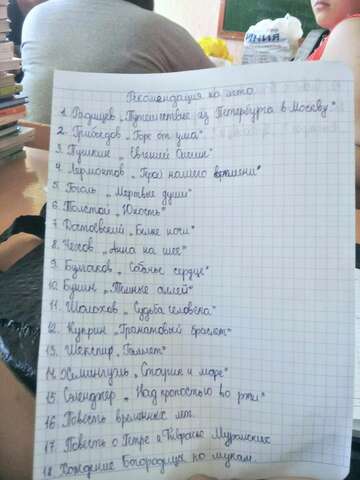 Рекомендация на лето
1. Радищев „Путешествие из Петербурга в Москву"
2. Грибоедов „Горе от ума"
3. Пушкин „Евгений Онегин"
4. Лермонтов „Герой нашего времени"
5. Гоголь „Мертвые души"
6. Толстой „Юность"
7. Достоевский „Белые ночи"
8. Чехов „Анна на шее"
9. Булгаков „Собачье сердце"
10. Бунин „Темные аллеи"
11. Шолохов „Судьба человека"
12. Куприн „Гранатовый браслет"
13. Шекспир „Гамлет"
14. Хемингуэль „Старик и море"
15. Сэленджер „Над пропастью во ржи"
16. Повесть временных лет.
17. Повесть о Петре и Февронии Муромских
18. Хождение Богородицы по мукам.